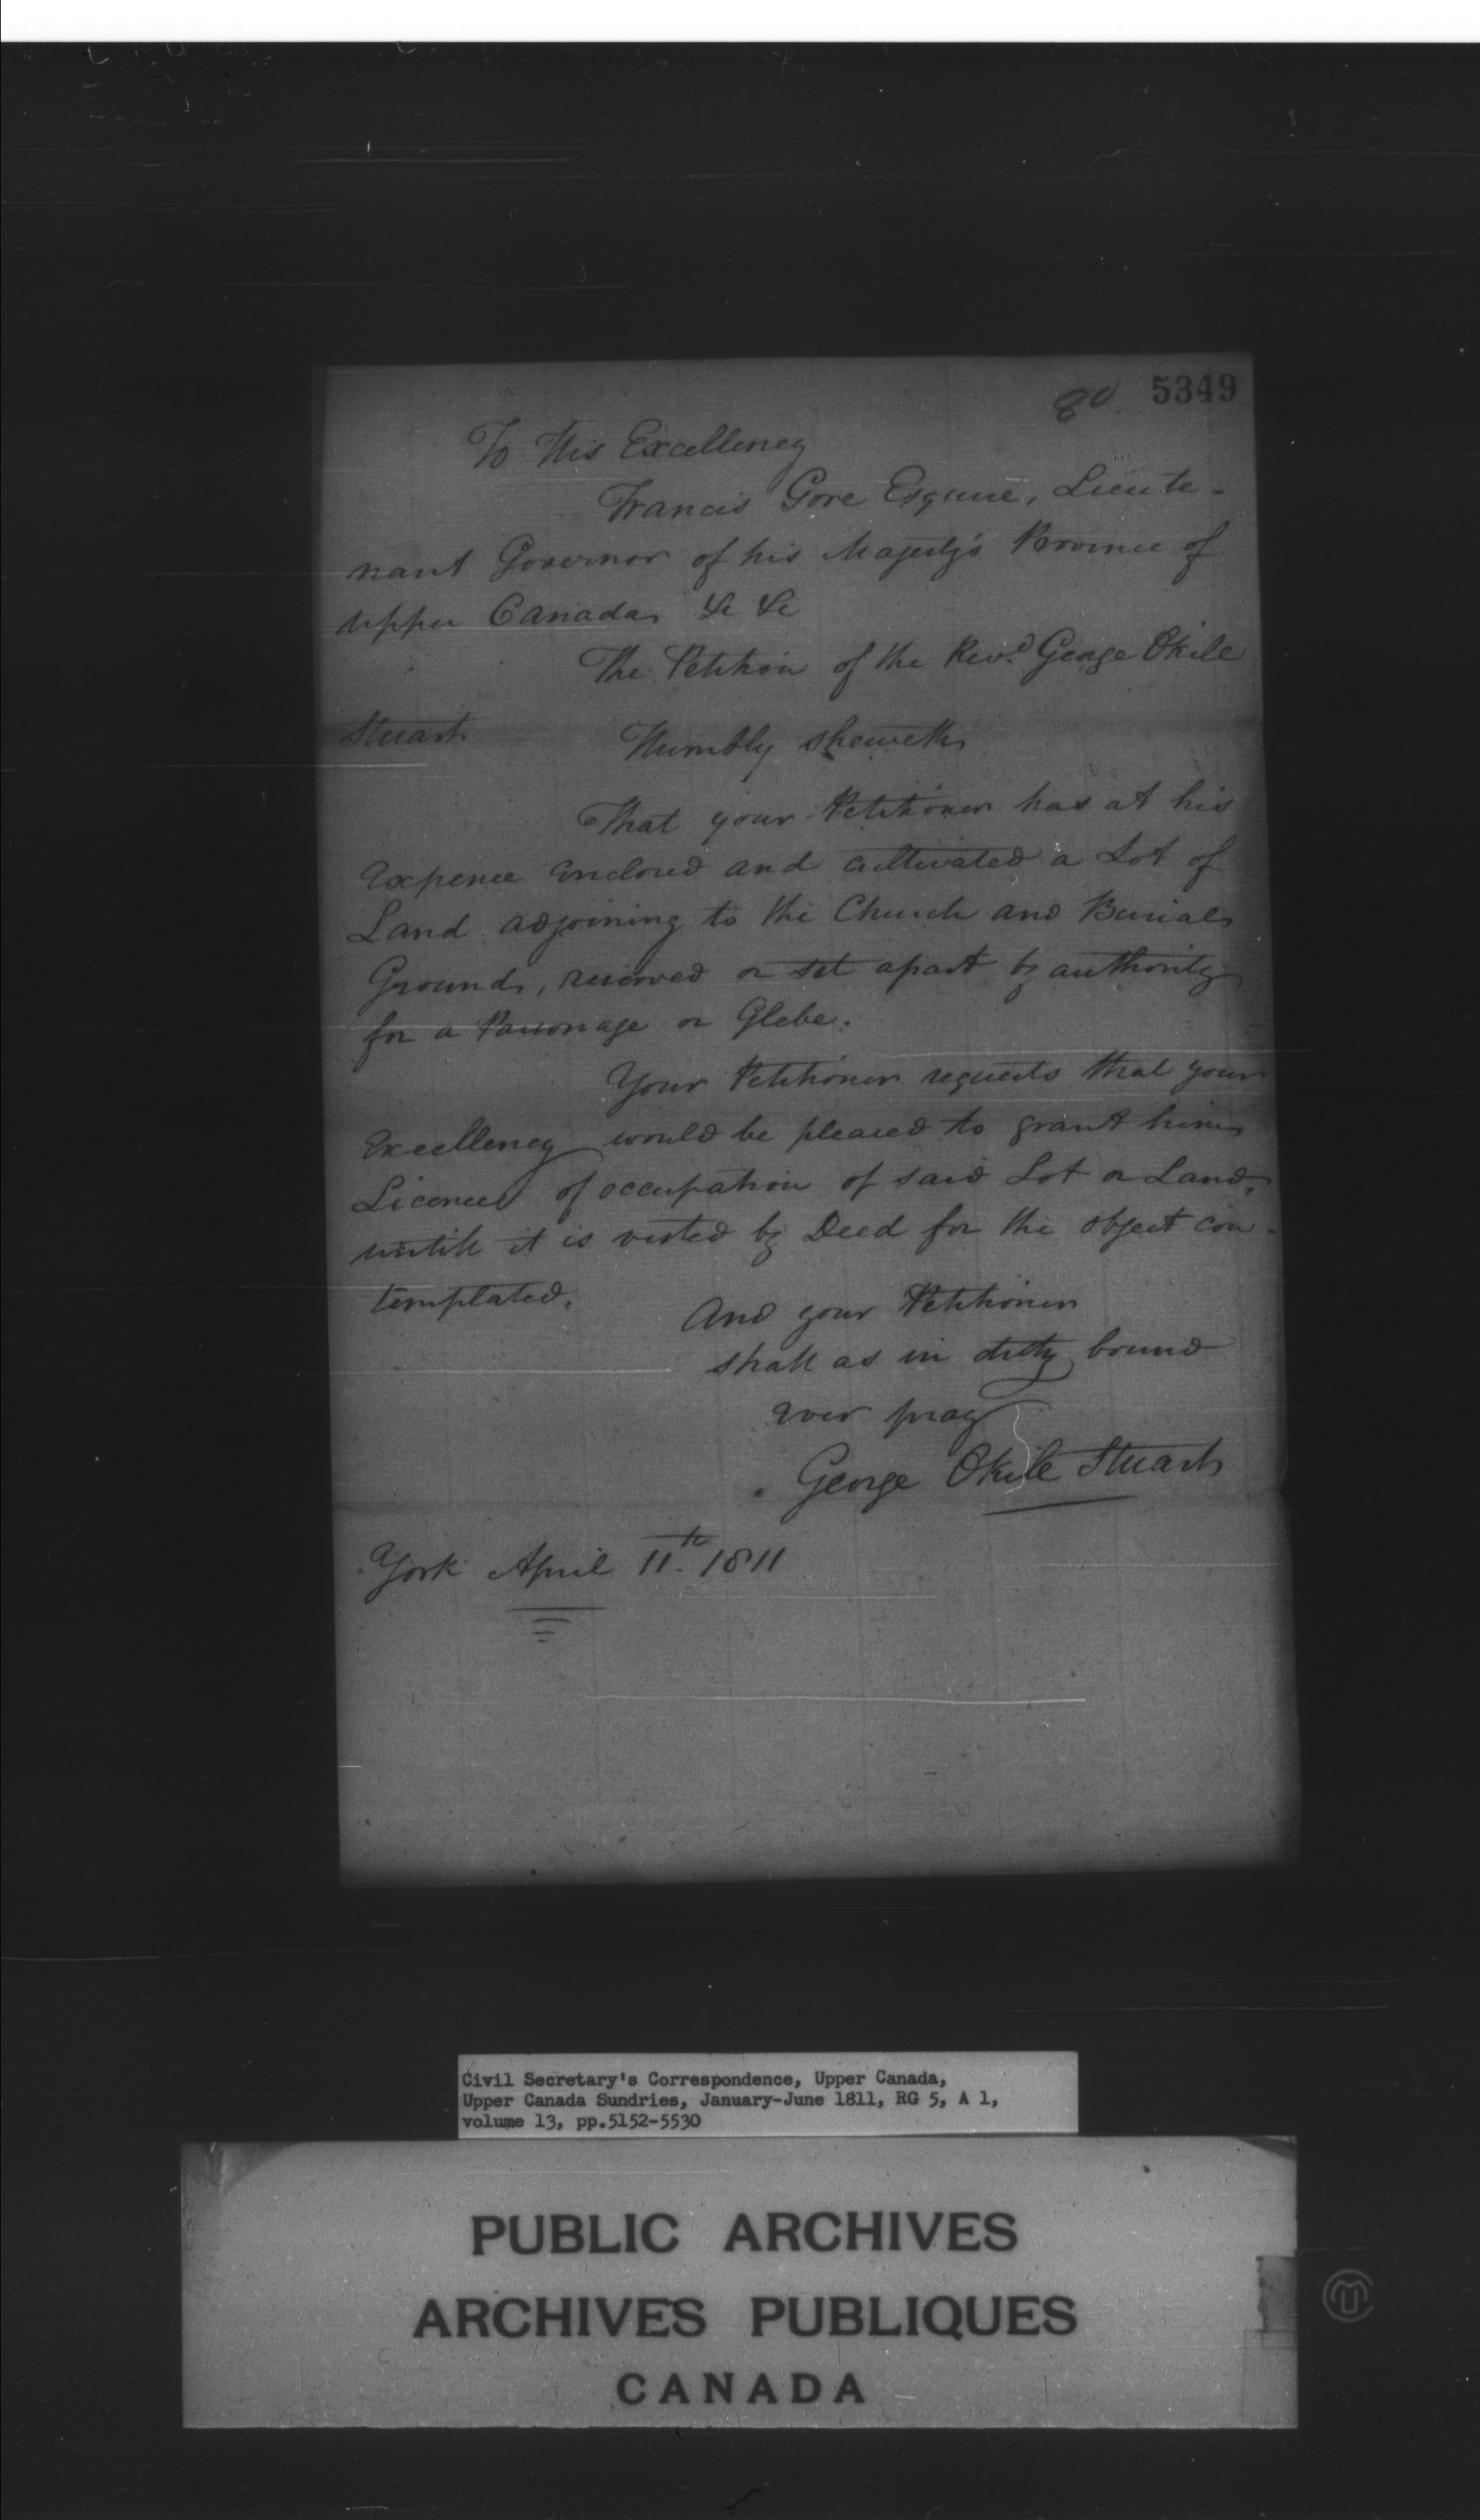 80 5349
To His Excellency
Francis Gore Esquire, Lieute-
nant Governor of his Majesty's Province of
Upper Canada &c &c
The Petition of the Revd. George Okile
Stuart
Humbly sheweth
That your Petitioner has at his
Expence Enclosed and cultivated a Lot of
Land adjoining to the Church and Burial
Ground, reserved or set apart by authority
for a Parsonage or Glebe.
Your Petitioner requests that your
Excellency would be pleased to grant him
Licence of occupation of said Lot or Land,
untill it is vested by Deed for the object con-
templated.
And your Petitioner
shall as in duty bound
ever pray
George Okile Stuart
York April 11th. 1811
Civil Secretary's Correspondence, Upper Canada,
Upper Canada Sundries, January-June 1811, RG 5, A 1,
volume 13, pp.5152-5530
PUBLIC ARCHIVES
ARCHIVES PUBLIQUES
CANADA